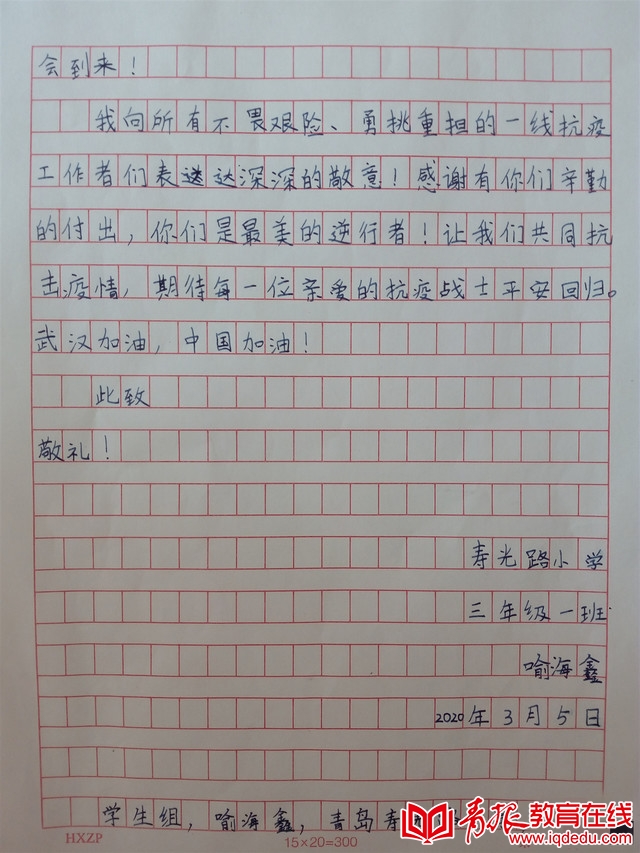 会到来！
我向所有不畏艰险、勇挑重担的一线抗疫
工作者们表送达深深的敬意！感谢有你们辛勤
的付出，你们是最美的逆行者！让我们共同抗
击疫情，期待每一位亲爱的抗疫战士平安回归。
武汉加油，中国加油！
此致
敬礼！
寿光路小学
三年级一班
喻海鑫
2020年3月5日
学生组，喻海鑫，青岛寿
HXZP
15×20=300
青报教育在线
www.iqdedu.com